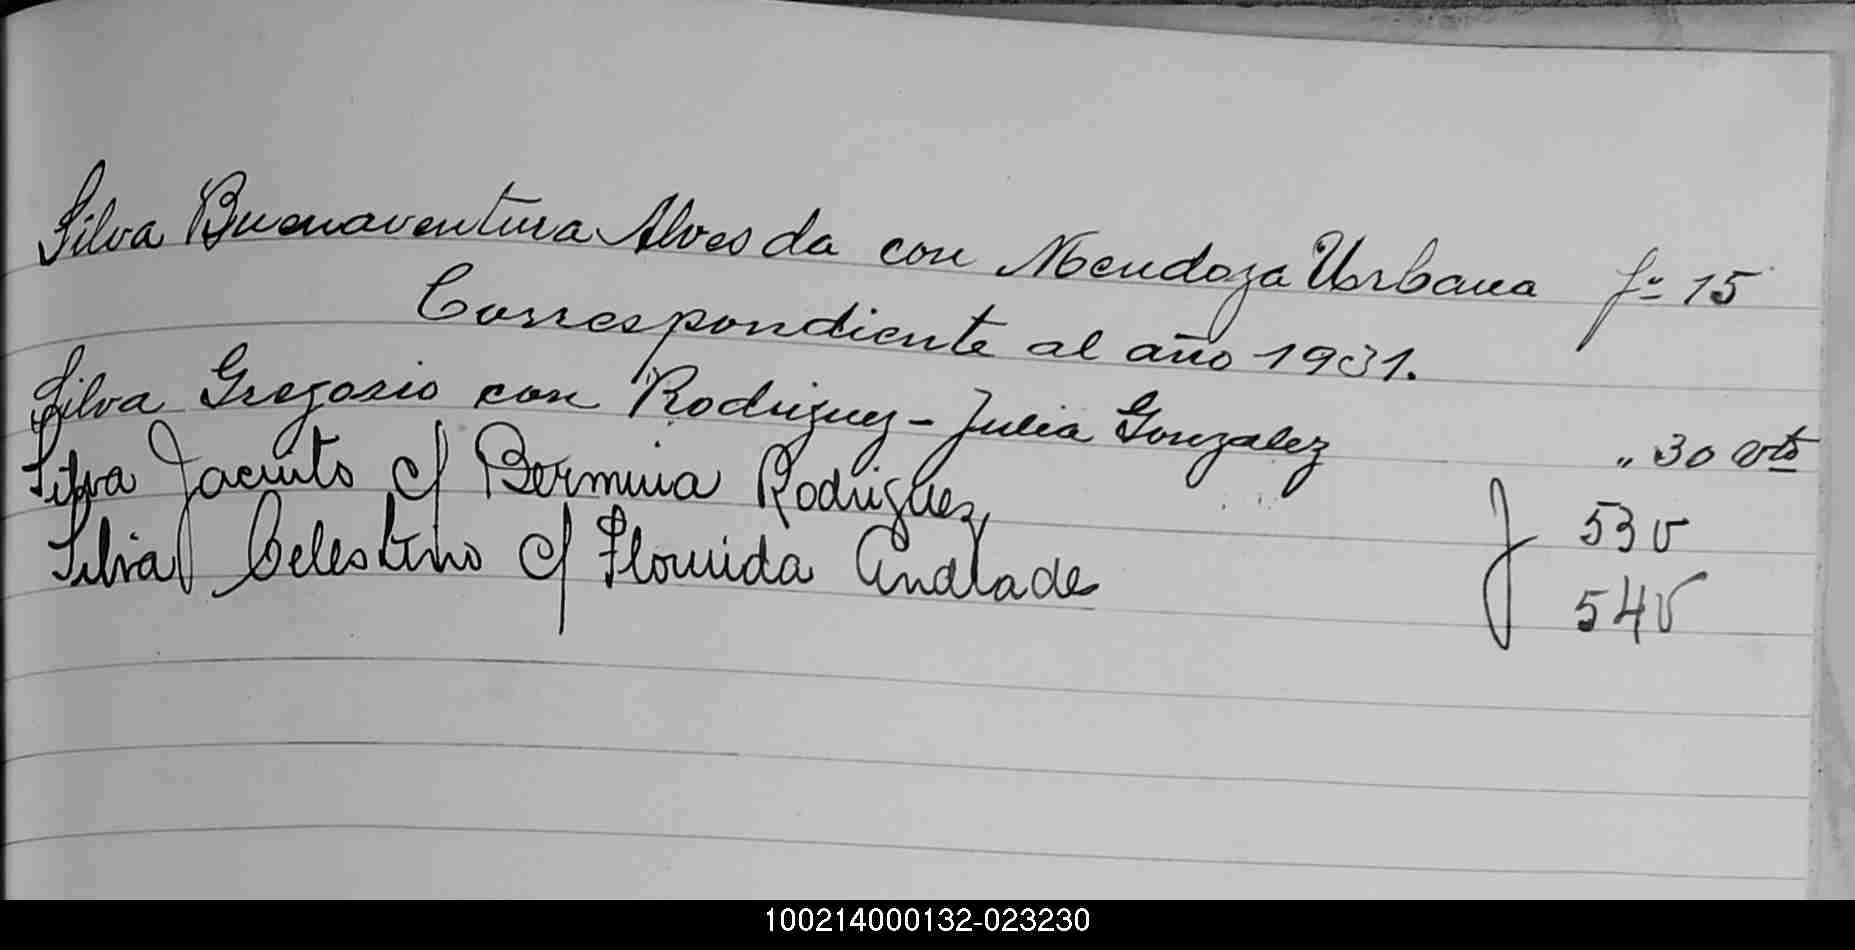 Silva Buenaventura Alves da con Mendoza Urbana fº 15
Correspondiente al año 1931.
Silva Gregorio con Rodriguez - Julia Gonzalez " 30 vto
Silva Jacinto c/ Bermina Rodriguez f 53 v
Silva Celestino c/ Florinda Andrade 54 v
100214000132-023230